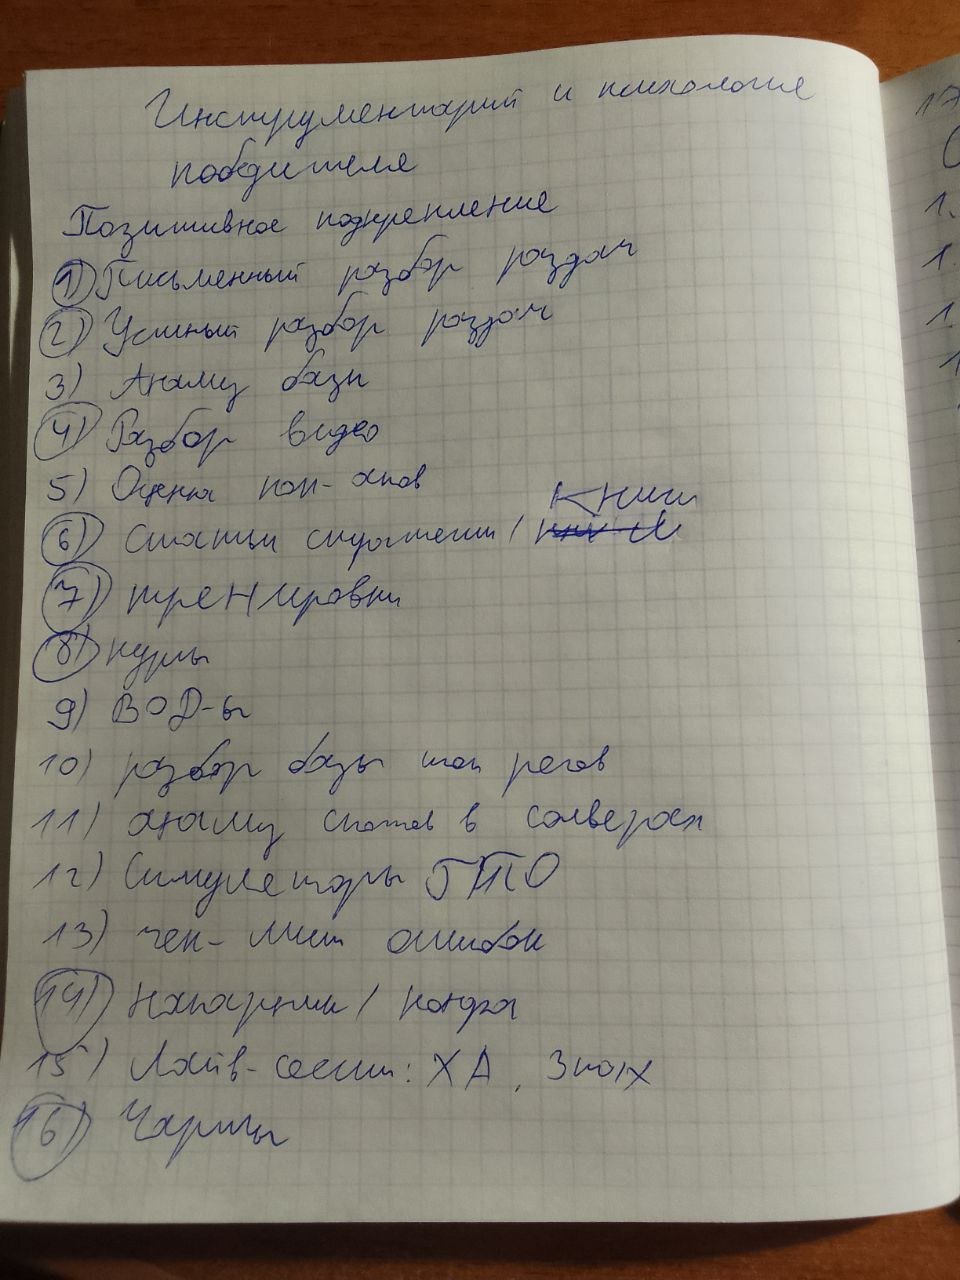 Инструментарий и психология
победителя
Позитивное подкрепление
1) Письменный разбор раздач
2) Устный разбор раздач
3) Анализ базы
4) Разбор видео
5) Оценка поп-апов
6) Статьи стратегии / Книги
7) тренировки
8) курсы
9) ВОД-ы
10) разбор базы топ регов
11) анализ спотов в солверах
12) Симуляторы ГТО
13) чек-лист ошибок
14) напарник / конфа
15) Лайв-сессии: ХА,
16) Чарты
17
1.
1.
1.
1